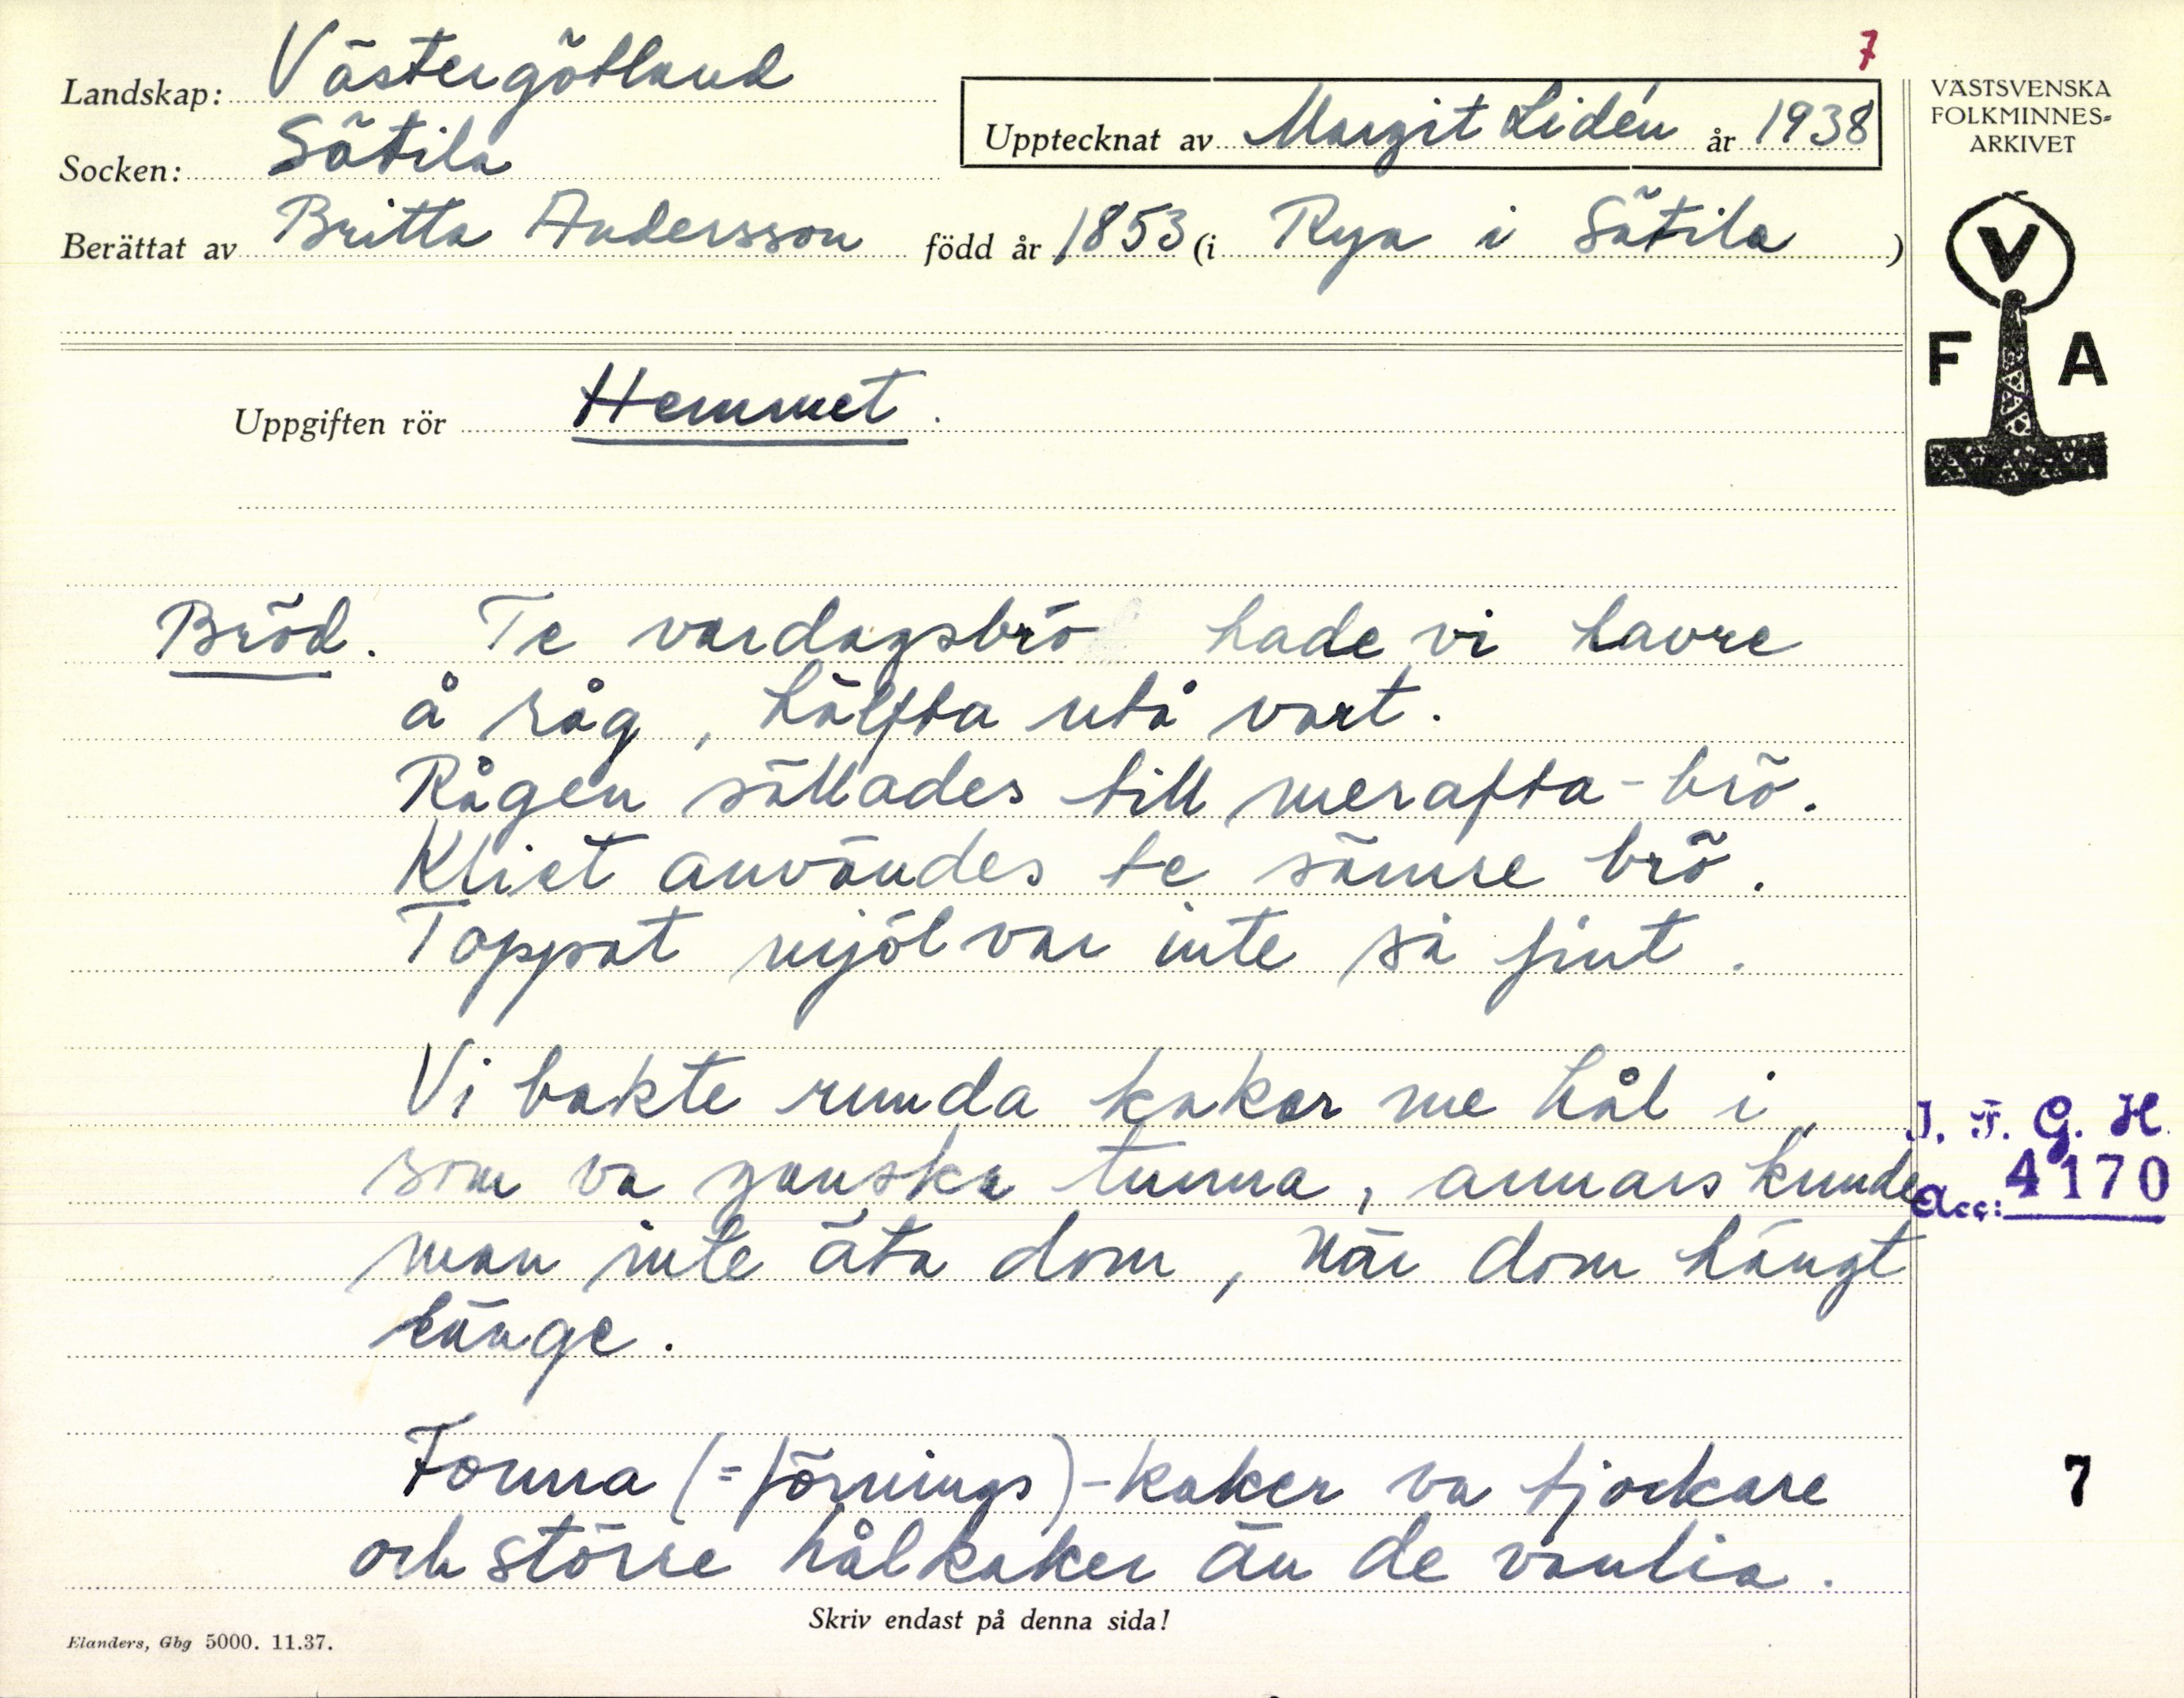 7
Landskap: Västergötland
Socken: Sätila
Upptecknat av Margit Lidén år 1938
Berättat av Britta Andersson född år 1853 (i Rya i Sätila )
VÄSTSVENSKA
FOLKMINNES-
ARKIVET
V
F A
Uppgiften rör Hemmet.
Bröd. Te vardagsbrö hade vi havre
å råg, hälfta utå vart.
Rågen sållades till merafta-brö.
Kliet användes te sämre brö.
Toppat mjöl var inte så fint.
Vi bakte runda kaker me hål i,
som va ganska tunna, annars kunde
man inte äta dom, när dom hängt
länge.
Fonna (=förnings)-kaker va tjockare
och större hålkaker än de vanlia.
I. F. G. H.
Acc: 4170
7
Skriv endast på denna sida!
Elanders, Gbg 5000. 11.37.